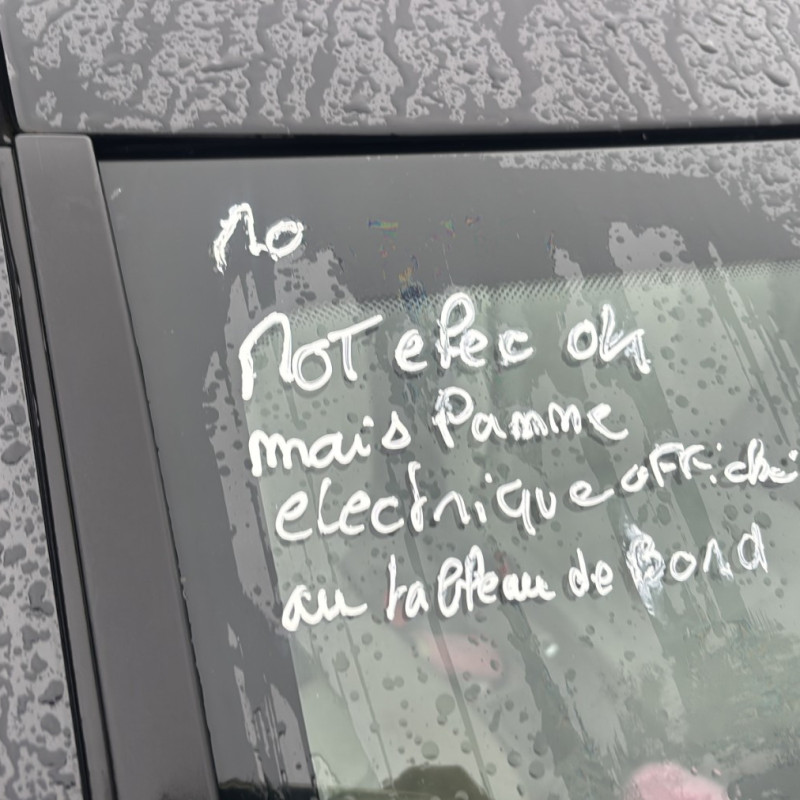 Mo
MOT elec ok
mais Panne
electrique affiché
au tableau de Bord